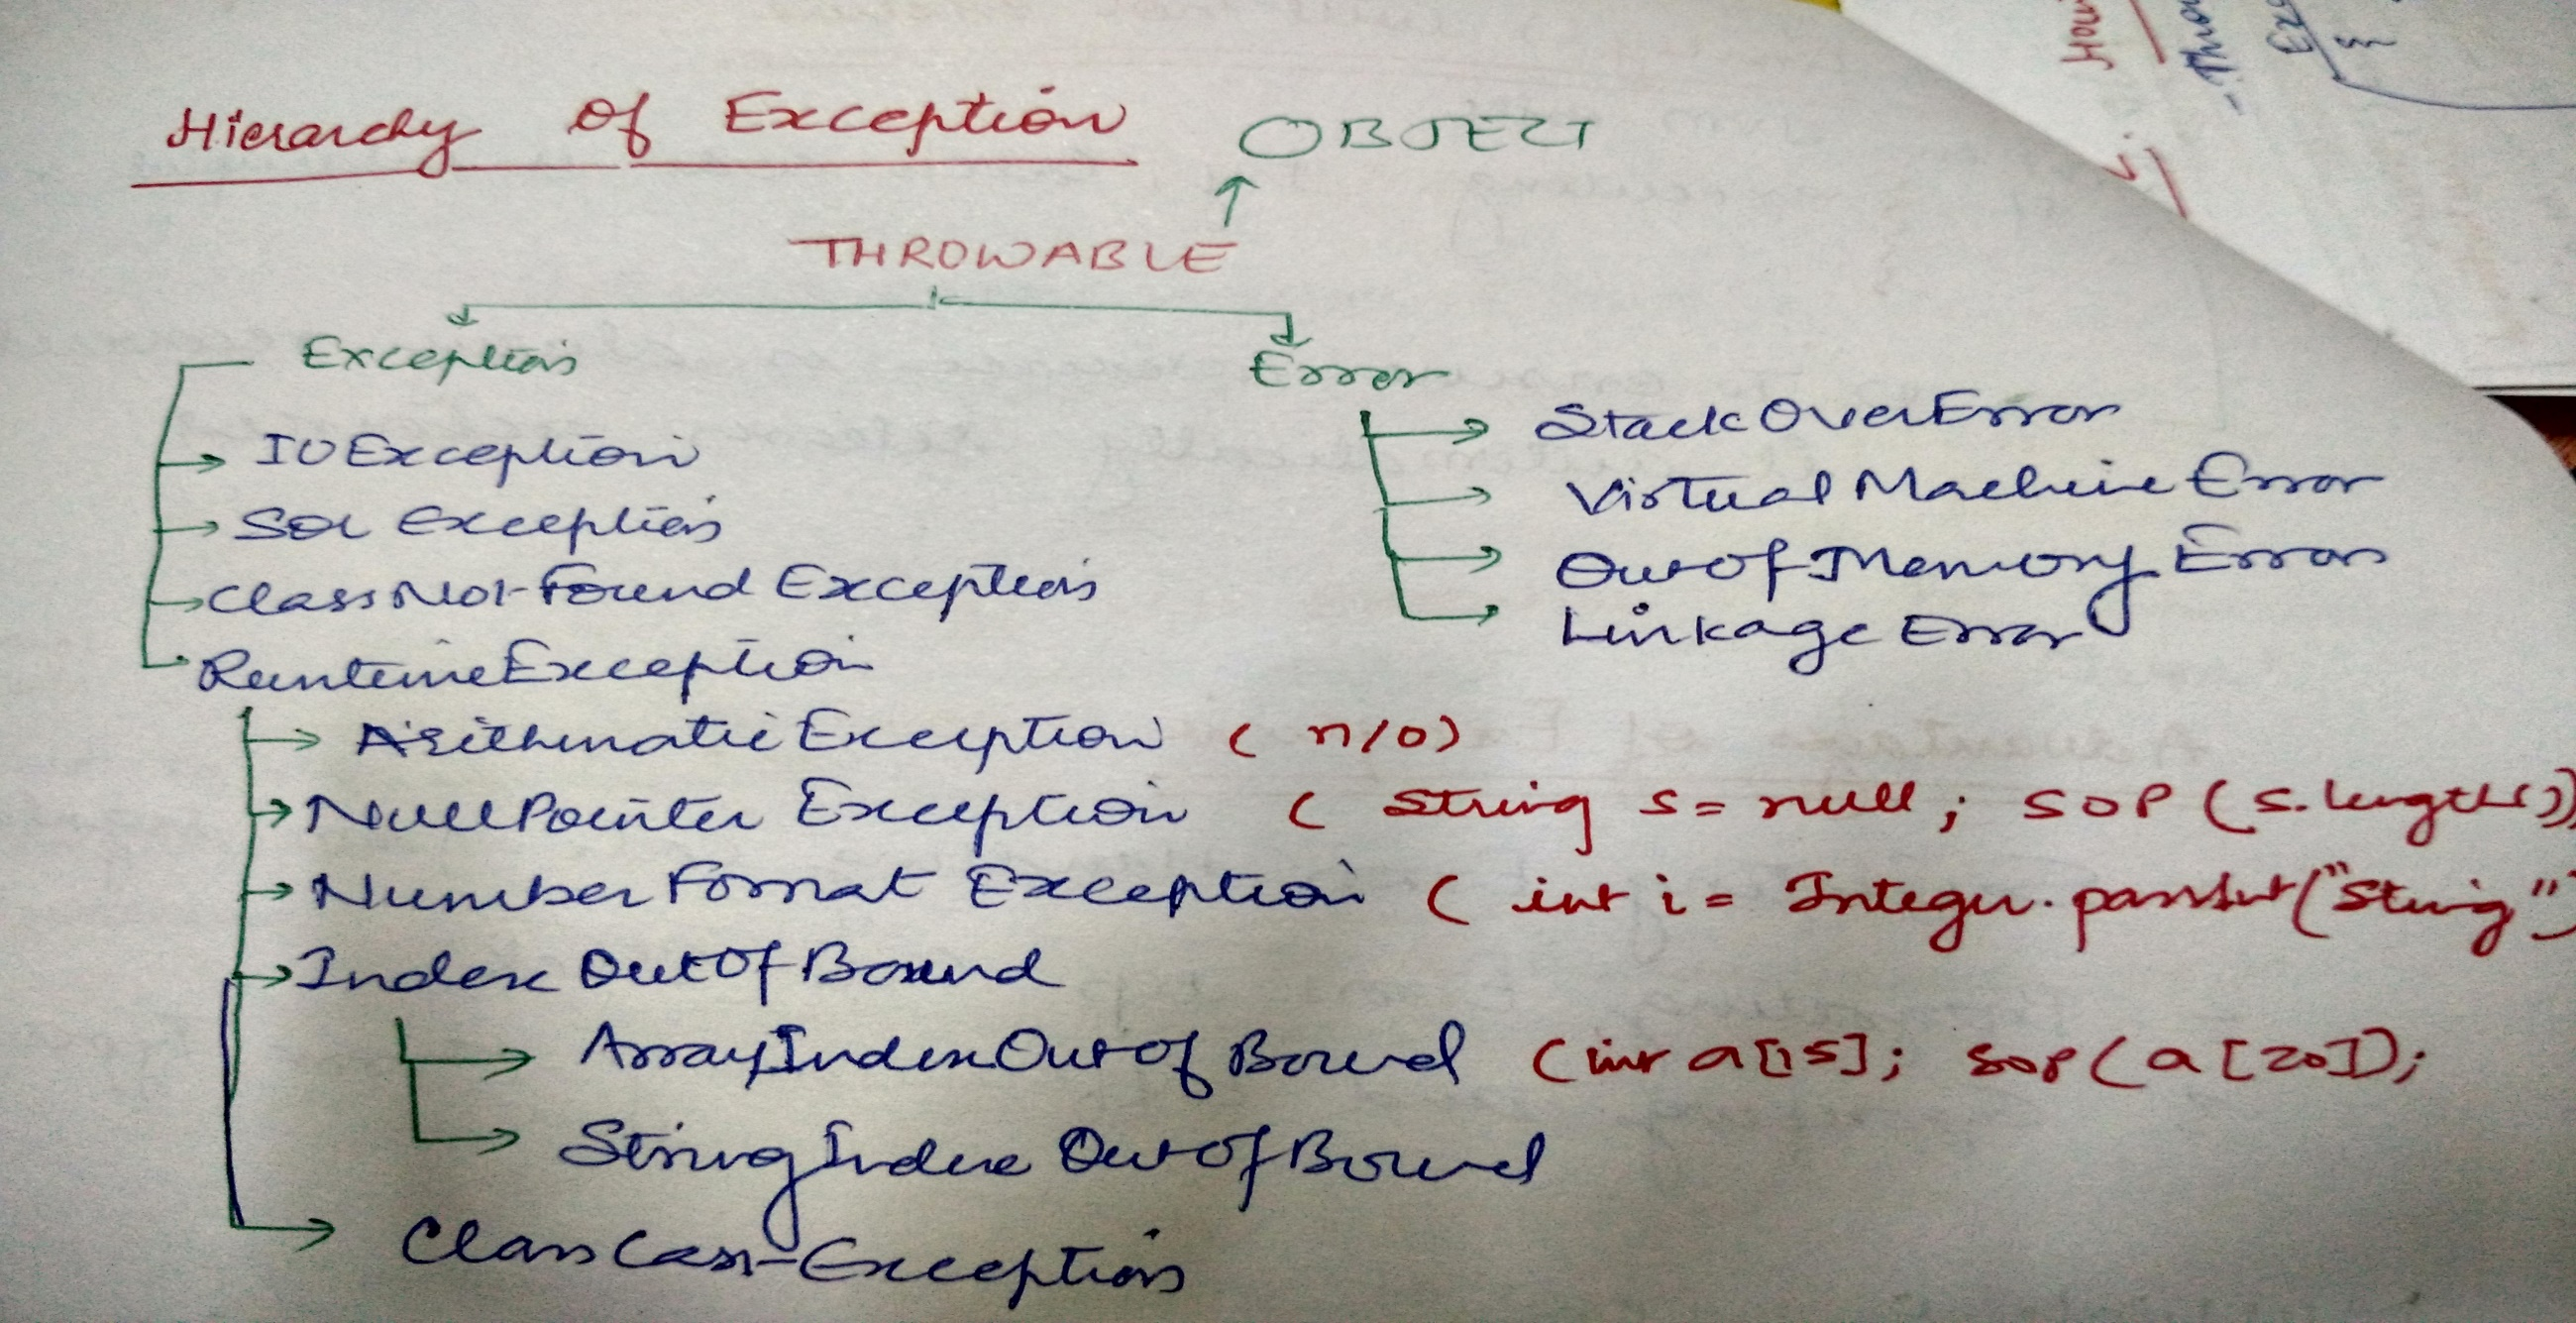 Hierarchy of Exception
OBJECT
THROWABLE
Exception
Error
IOException
SQL Exception
ClassNotFound Exception
RuntimeException
StackOverError
Virtual Machine Error
OutOfMemory Error
Linkage Error
Arithmatic Exception ( n/0)
NullPointer Exception ( String s = null ; SOP (s.length())
Number Format Exception ( int i = Integer.parseInt("String")
Index OutOf Bound
ArrayIndexOutOf Bound (int a[15]; SOP( a [20]);
StringIndex OutOfBound
ClassCast Exception